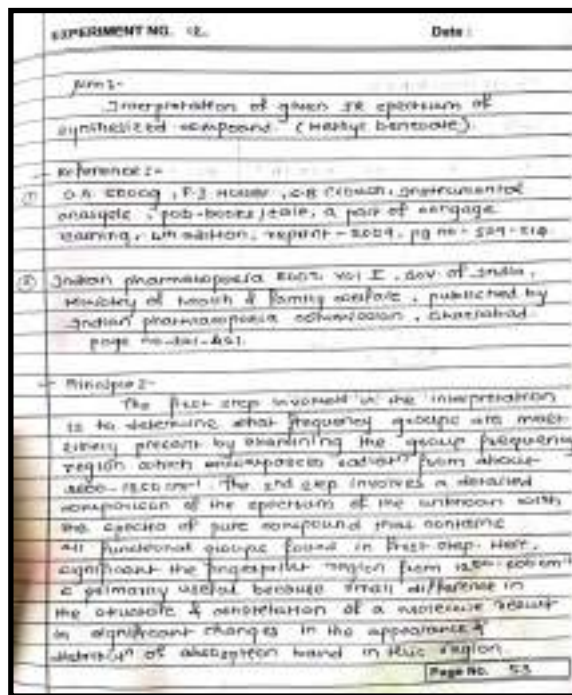 EXPERIMENT NO. 12. Date :
Aim :-
Interpretation of given IR spectrum of
synthesized compound. (Methyl benzoate)
Reference :-
① D.A. Skoog, F.J. Holler, S.R. Crouch, Instrumental
analysis, pub-books/cole, a part of cengage
learning, 4th edition, reprint - 2009, pg no -
② Indian pharmacopoeia 2007, vol I, Gov. of India,
Ministry of health & family welfare, published by
Indian pharmacopoeia commission, Ghaziabad.
page no-
Principle :-
The first step involved in the interpretation
is to determine what frequency groups are most
likely present by examining the group frequency
region which encompasses radiatⁿ from about
3600-1250 cm⁻¹. The 2nd step involves a detailed
comparison of the spectrum of the unknown with
the spectra of pure compound that contains
all functional groups found in first step. Here,
significant the fingerprint region from 1200-600 cm⁻¹
is primarily useful because small difference in
the structure & constitution of a molecule result
in significant changes in the appearance &
distributⁿ of absorption band in this region.
Page No. 53